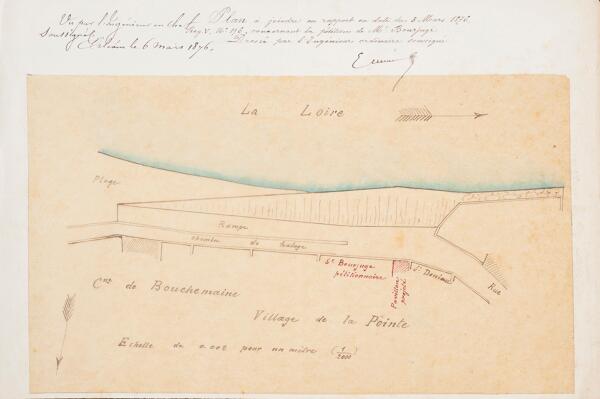 Vu par l'Ingénieur en chef
Soussigné
Orléans le 6 mars 1876.
Plan à joindre au rapport en date du 3 Mars 1876
Reg. V. N° 116, concernant la pétition de Mr Bourjuge
Dressé par l'Ingénieur ordinaire soussigné
La Loire
Plage
Rampe
chemin de halage
Sr Bourjuge
pétitionnaire
Pavillon
projeté
Sr Deniau
Rue
Cne de Bouchemaine
Village de la Pointe
Echelle de 0.002 pour un mètre (1/2000)